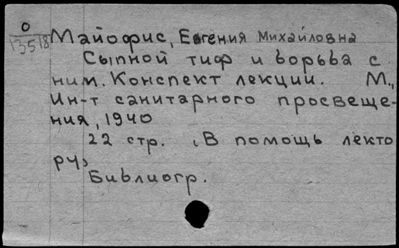 О
13518
Майофис, Евгения Михайловна
Сыпной тиф и борьба с
ним. Конспект лекции. М.,
Ин-т санитарного просвеще-
ния, 1940
22 стр. (В помощь лекто
ру)
Библиогр.